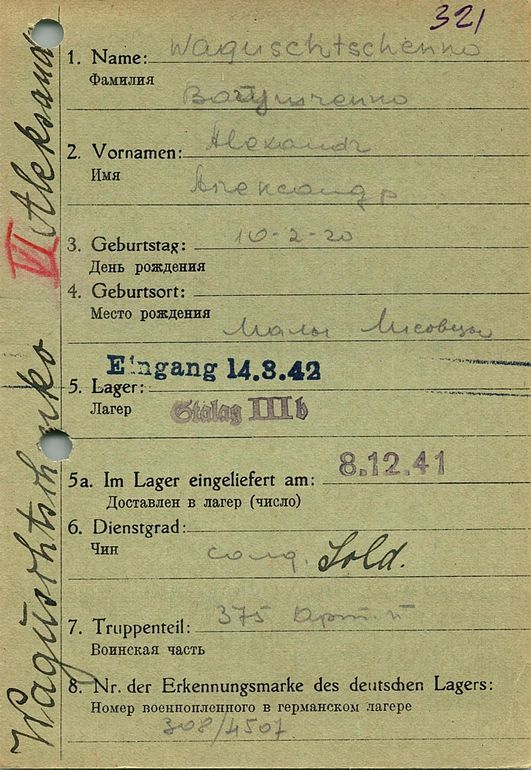 321
1. Name: Waguschtschenko
Фамилия
Вагущенко
2. Vornamen: Alexandr
Имя
Александр
3. Geburtstag: 10-2-20
День рождения
4. Geburtsort:
Место рождения
Малы Лисовцы
Eingang 14.8.42
5. Lager:
Лагер
Stalag III b
5a. Im Lager eingeliefert am: 8.12.41
Доставлен в лагер (число)
6. Dienstgrad:
Чин
солд. Sold.
7. Truppenteil: 375 Арт. п
Воинская часть
8. Nr. der Erkennungsmarke des deutschen Lagers:
Номер военнопленного в германском лагере
308/4507
Waguschtschenko VI Aleksand